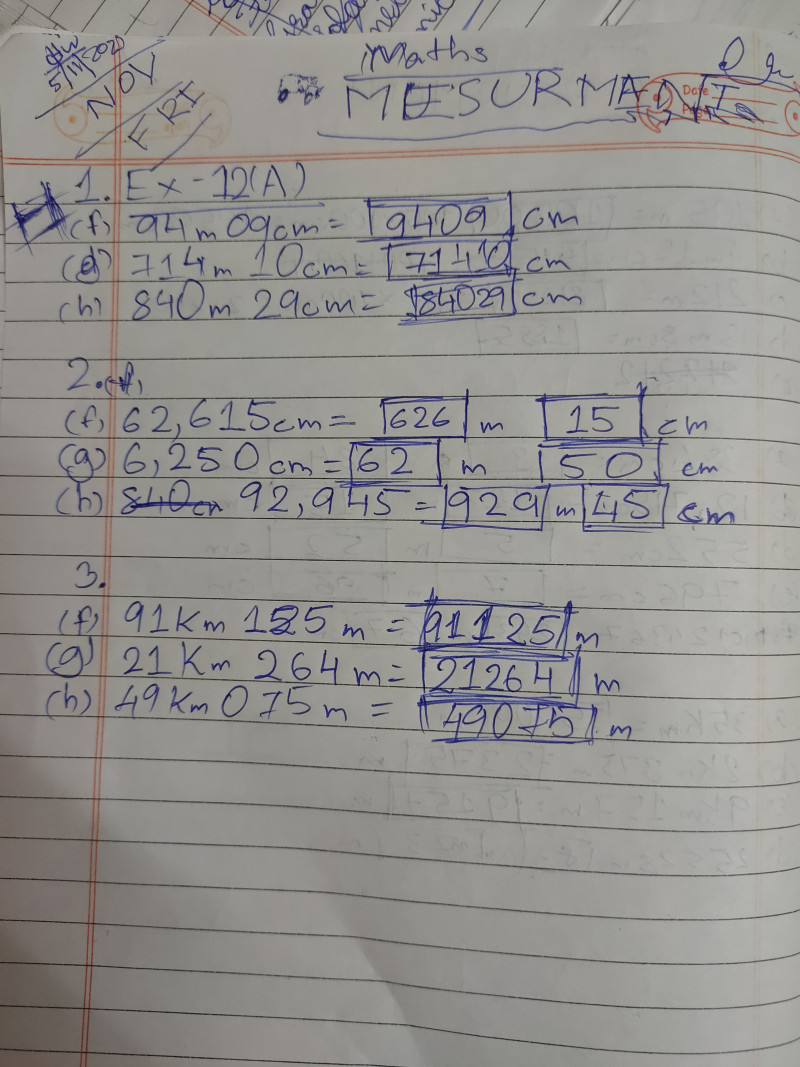 HW
5/11/2021
NOV
FRI
Maths
MEESURMANT
Date
Page
1. Ex-12(A)
(f) 94m 09cm = 9409 cm
(g) 714m 10cm = 71410 cm
(h) 840m 29cm = 84029 cm
2. (f)
(f) 62,615cm = 626 m 15 cm
(g) 6,250cm = 62 m 50 cm
(h) 840cm 92,945 = 929 m 45 cm
3.
(f) 91Km 125m = 91125 m
(g) 21Km 264m = 21264 m
(h) 49Km 075m = 49075 m